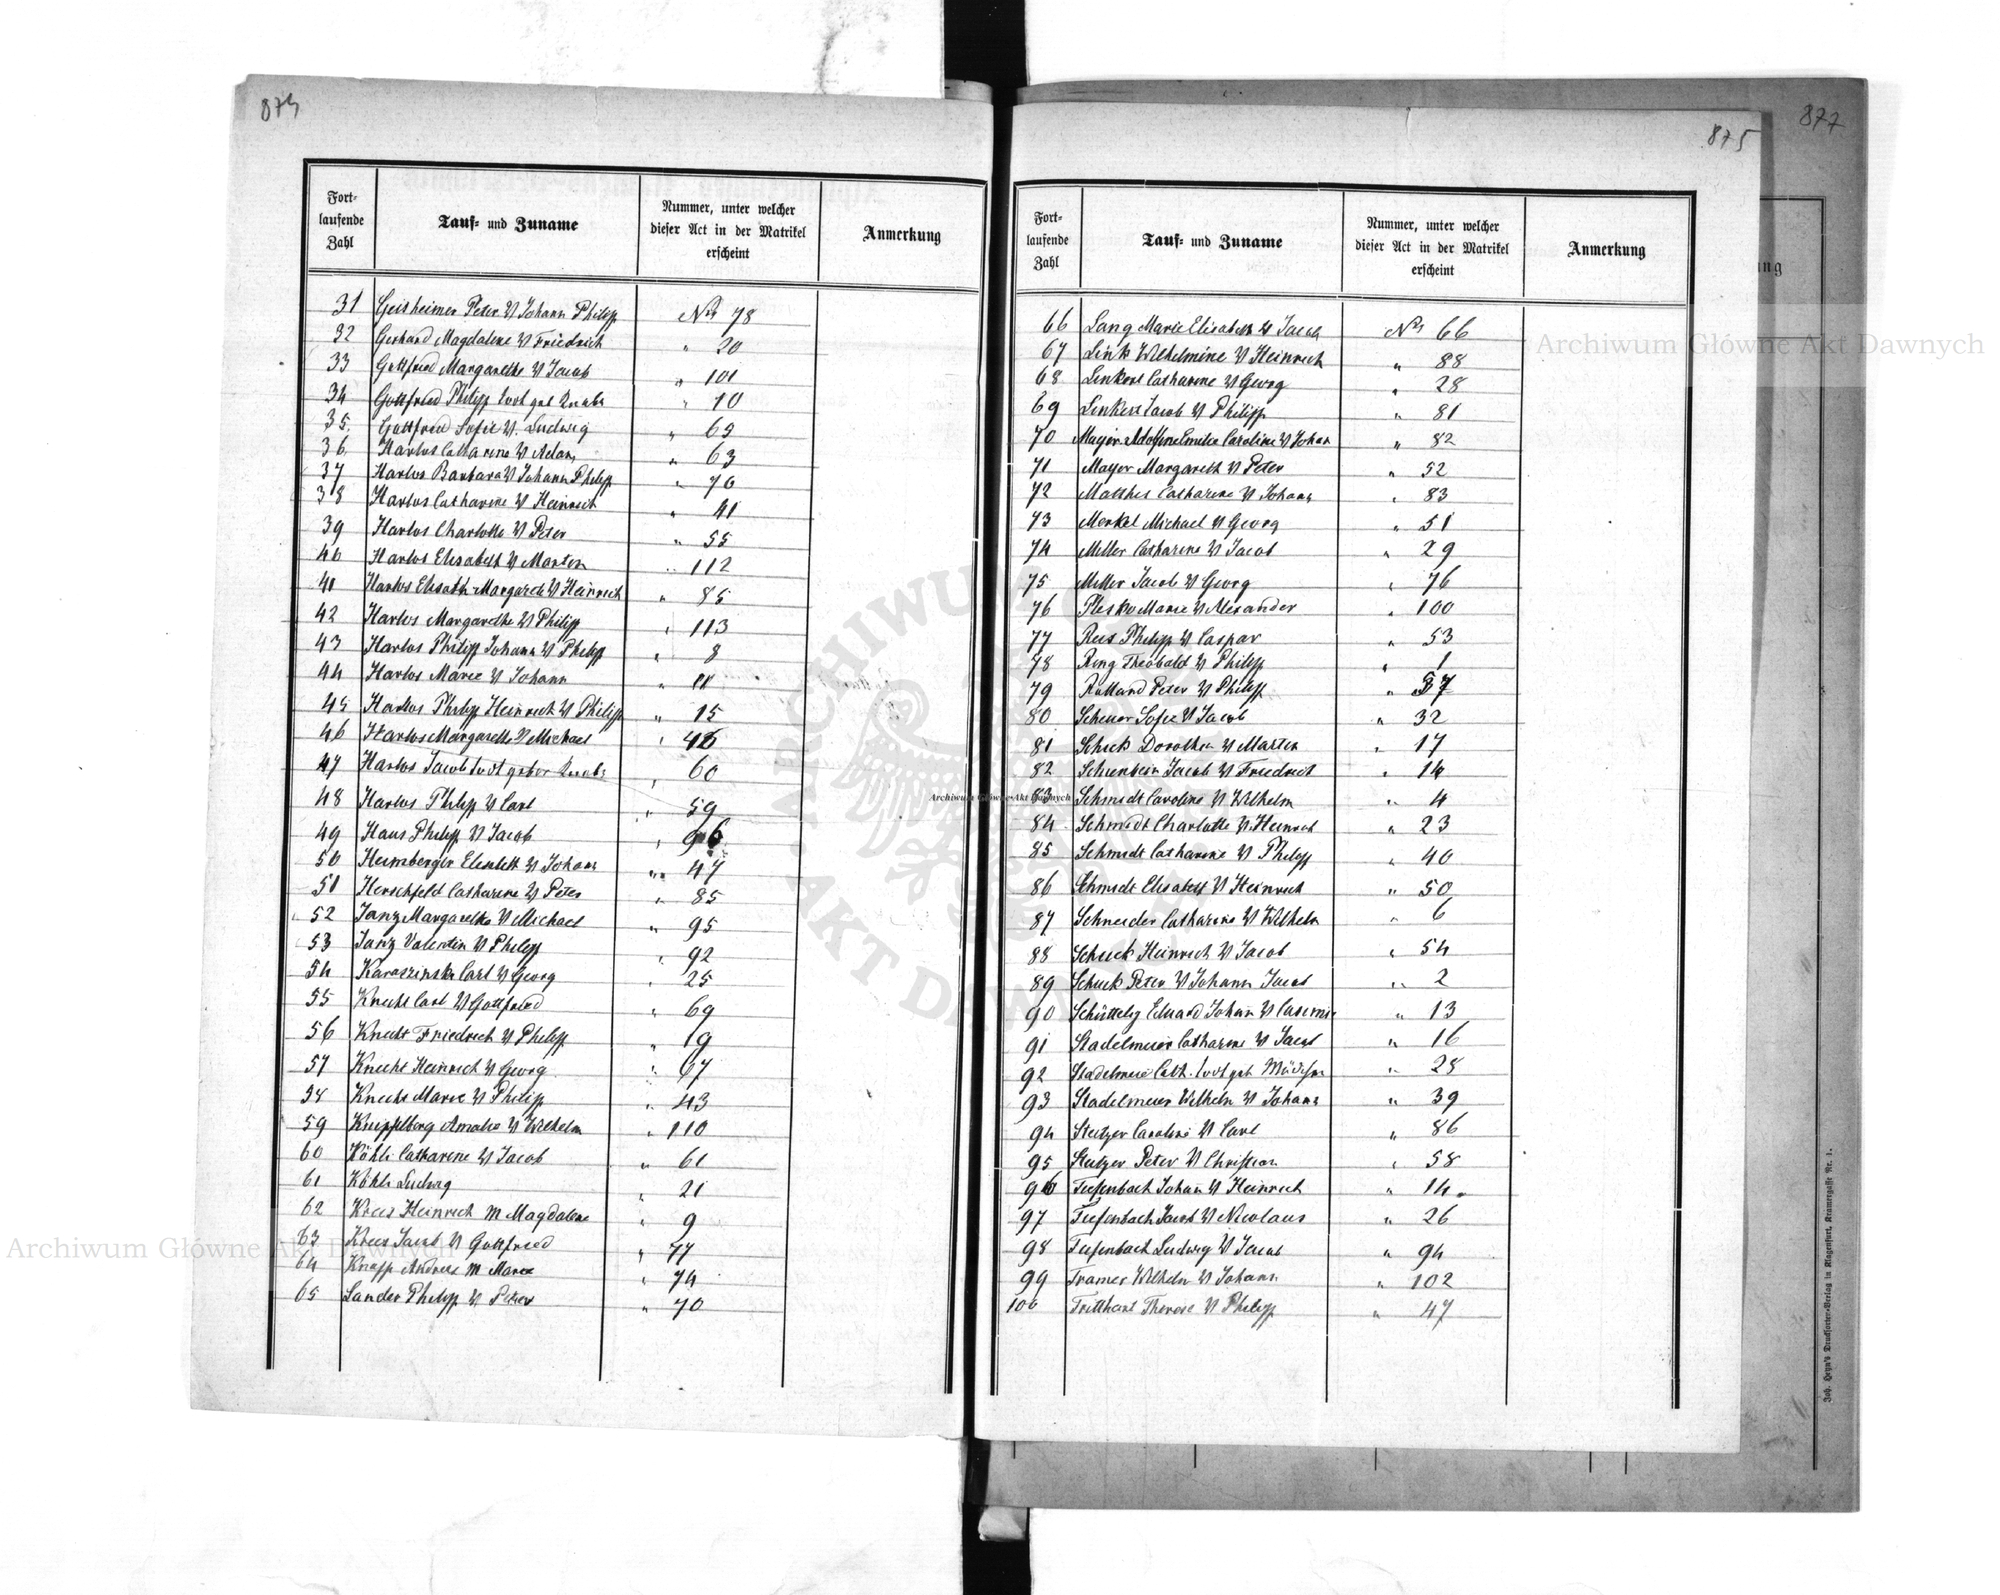 874
Fort-
laufende
Zahl
Tauf- und Zuname
Nummer, unter welcher
dieser Act in der Matrikel
erscheint
Anmerkung
31 Geisheimer Peter V Johann Philipp Nr 78
32 Gerhard Magdalene V Friedrich " 20
33 Gottfried Margarethe V Jacob " 101
34 Gottfried Philipp todt geb Knabe " 10
35. Gottfried Sofie V. Ludwig " 65
36 Harlos Catharine V Adam " 63
37 Harlos Barbara V Johann Philipp " 76
38 Harlos Catharine V Heinrich " 41
39 Harlos Charlotte V Peter " 55
40 Harlos Elisabeth V Martin " 112
41 Harlos Elisabth Margareth V Heinrich " 85
42 Harlos Margarethe V Philipp " 113
43 Harlos Philipp Johann V Philipp " 8
44 Harlos Marie V Johann " 11
45 Harlos Philipp Heinrich V Philipp " 15
46 Harlos Margarethe V Michael "
47 Harlos Jacob todt gebor Knabe " 60
48 Harlos Philipp V Carl " 59
49 Haus Philipp V Jacob " 96
50 Heimberger Elisabeth V Johann " 47
51 Herschfeld Catharine V Peter " 85
52 Janz Margarethe V Michael " 95
53 Janz Valentin V Philipp " 92
54 Karaszinski Carl V Georg " 25
55 Knecht Carl V Gottfried " 69
56 Knecht Friedrich V Philipp " 19
57 Knecht Heinrich V Georg " 67
58 Knecht Marie V Philipp " 43
59 Knipfelberg Amalie V Wilhelm " 110
60 Köhli Catharine V Jacob " 61
61 Köhli Ludwig " 21
62 Krees Heinrich M Magdalene " 9
63 Krees Jacob V Gottfried " 77
64 Knapp Andreas M Marie " 74
65 Lander Philipp V Peter " 70
875
Fort-
laufende
Zahl
Tauf- und Zuname
Nummer, unter welcher
dieser Act in der Matrikel
erscheint
Anmerkung
66 Lang Marie Elisabeth V Jacob Nr 66
67 Link Wilhelmine V Heinrich " 88
68 Linkert Catharine V Georg " 28
69 Linkert Jacob V Philipp " 81
70 Mayer Adolfine Emilie Caroline V Johan " 82
71 Mayer Margareth V Peter " 52
72 Matthis Catharine V Johann " 83
73 Merkel Michael V Georg " 51
74 Miller Catharine V Jacob " 29
75 Miller Jacob V Georg " 76
76 Plesko Marie V Alexander " 100
77 Reis Philipp V Caspar " 53
78 Ring Theobald V Philipp " 1
79 Rolland Peter V Philipp " 37
80 Scheuer Sofie V Jacob " 32
81 Schick Dorothea V Martin " 17
82 Schienbein Jacob V Friedrich " 14
83 Schmidt Caroline V Wilhelm " 4
84 Schmidt Charlotte V Heinrich " 23
85 Schmidt Catharine V Philipp " 40
86 Schmidt Elisabeth V Heinrich " 50
87 Schneider Catharine V Wilhelm " 6
88 Schuck Heinrich V Jacob " 54
89 Schuck Peter V Johann Jacob " 2
90 Schüttely Eduard Johann V Casimir " 13
91 Stadelmeier Catharine V Jacob " 16
92 Stadelmeie Cath. todt geb Mädchen " 28
93 Stadelmeier Wilhelm V Johann " 39
94 Steitzer Caroline V Carl " 86
95 Steitzer Peter V Christian " 58
96 Tiefenbach Johann V Heinrich " 14
97 Tiefenbach Jacob V Nicolaus " 26
98 Tiefenbach Ludwig V Jacob " 94
99 Tramer Wilhelm V Johann " 102
100 Tritthart Therese V Philipp " 47
877
ng
Joh. Heyn's Drucksorten-Verlag in Klagenfurt, Kramergasse Nr. 1.
Archiwum Główne Akt Dawnych
Archiwum Główne Akt Dawnych
Archiwum Główne Akt Dawnych